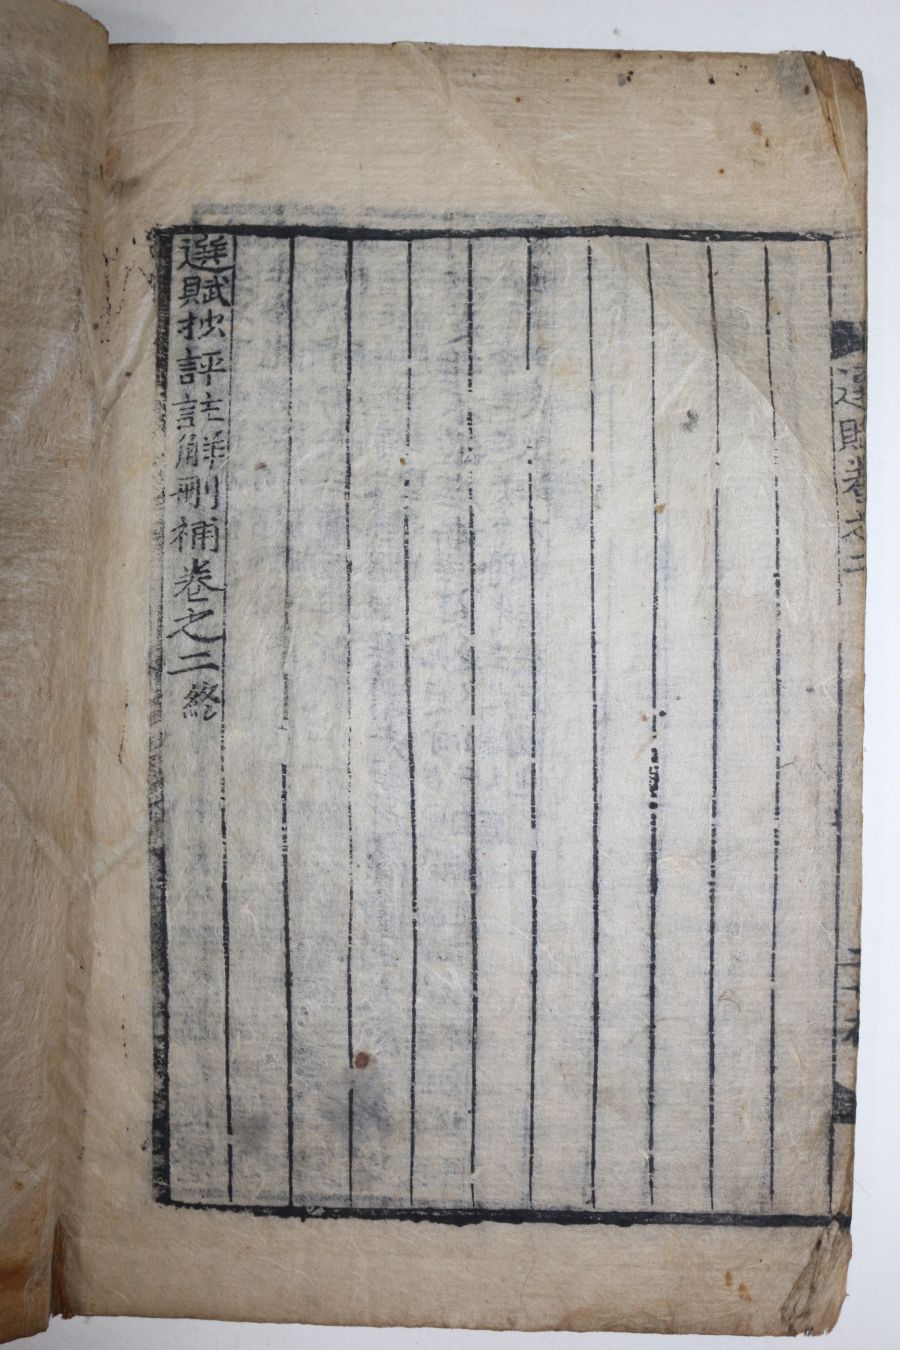 選賦卷之二
選賦抄評註解刪補卷之二終